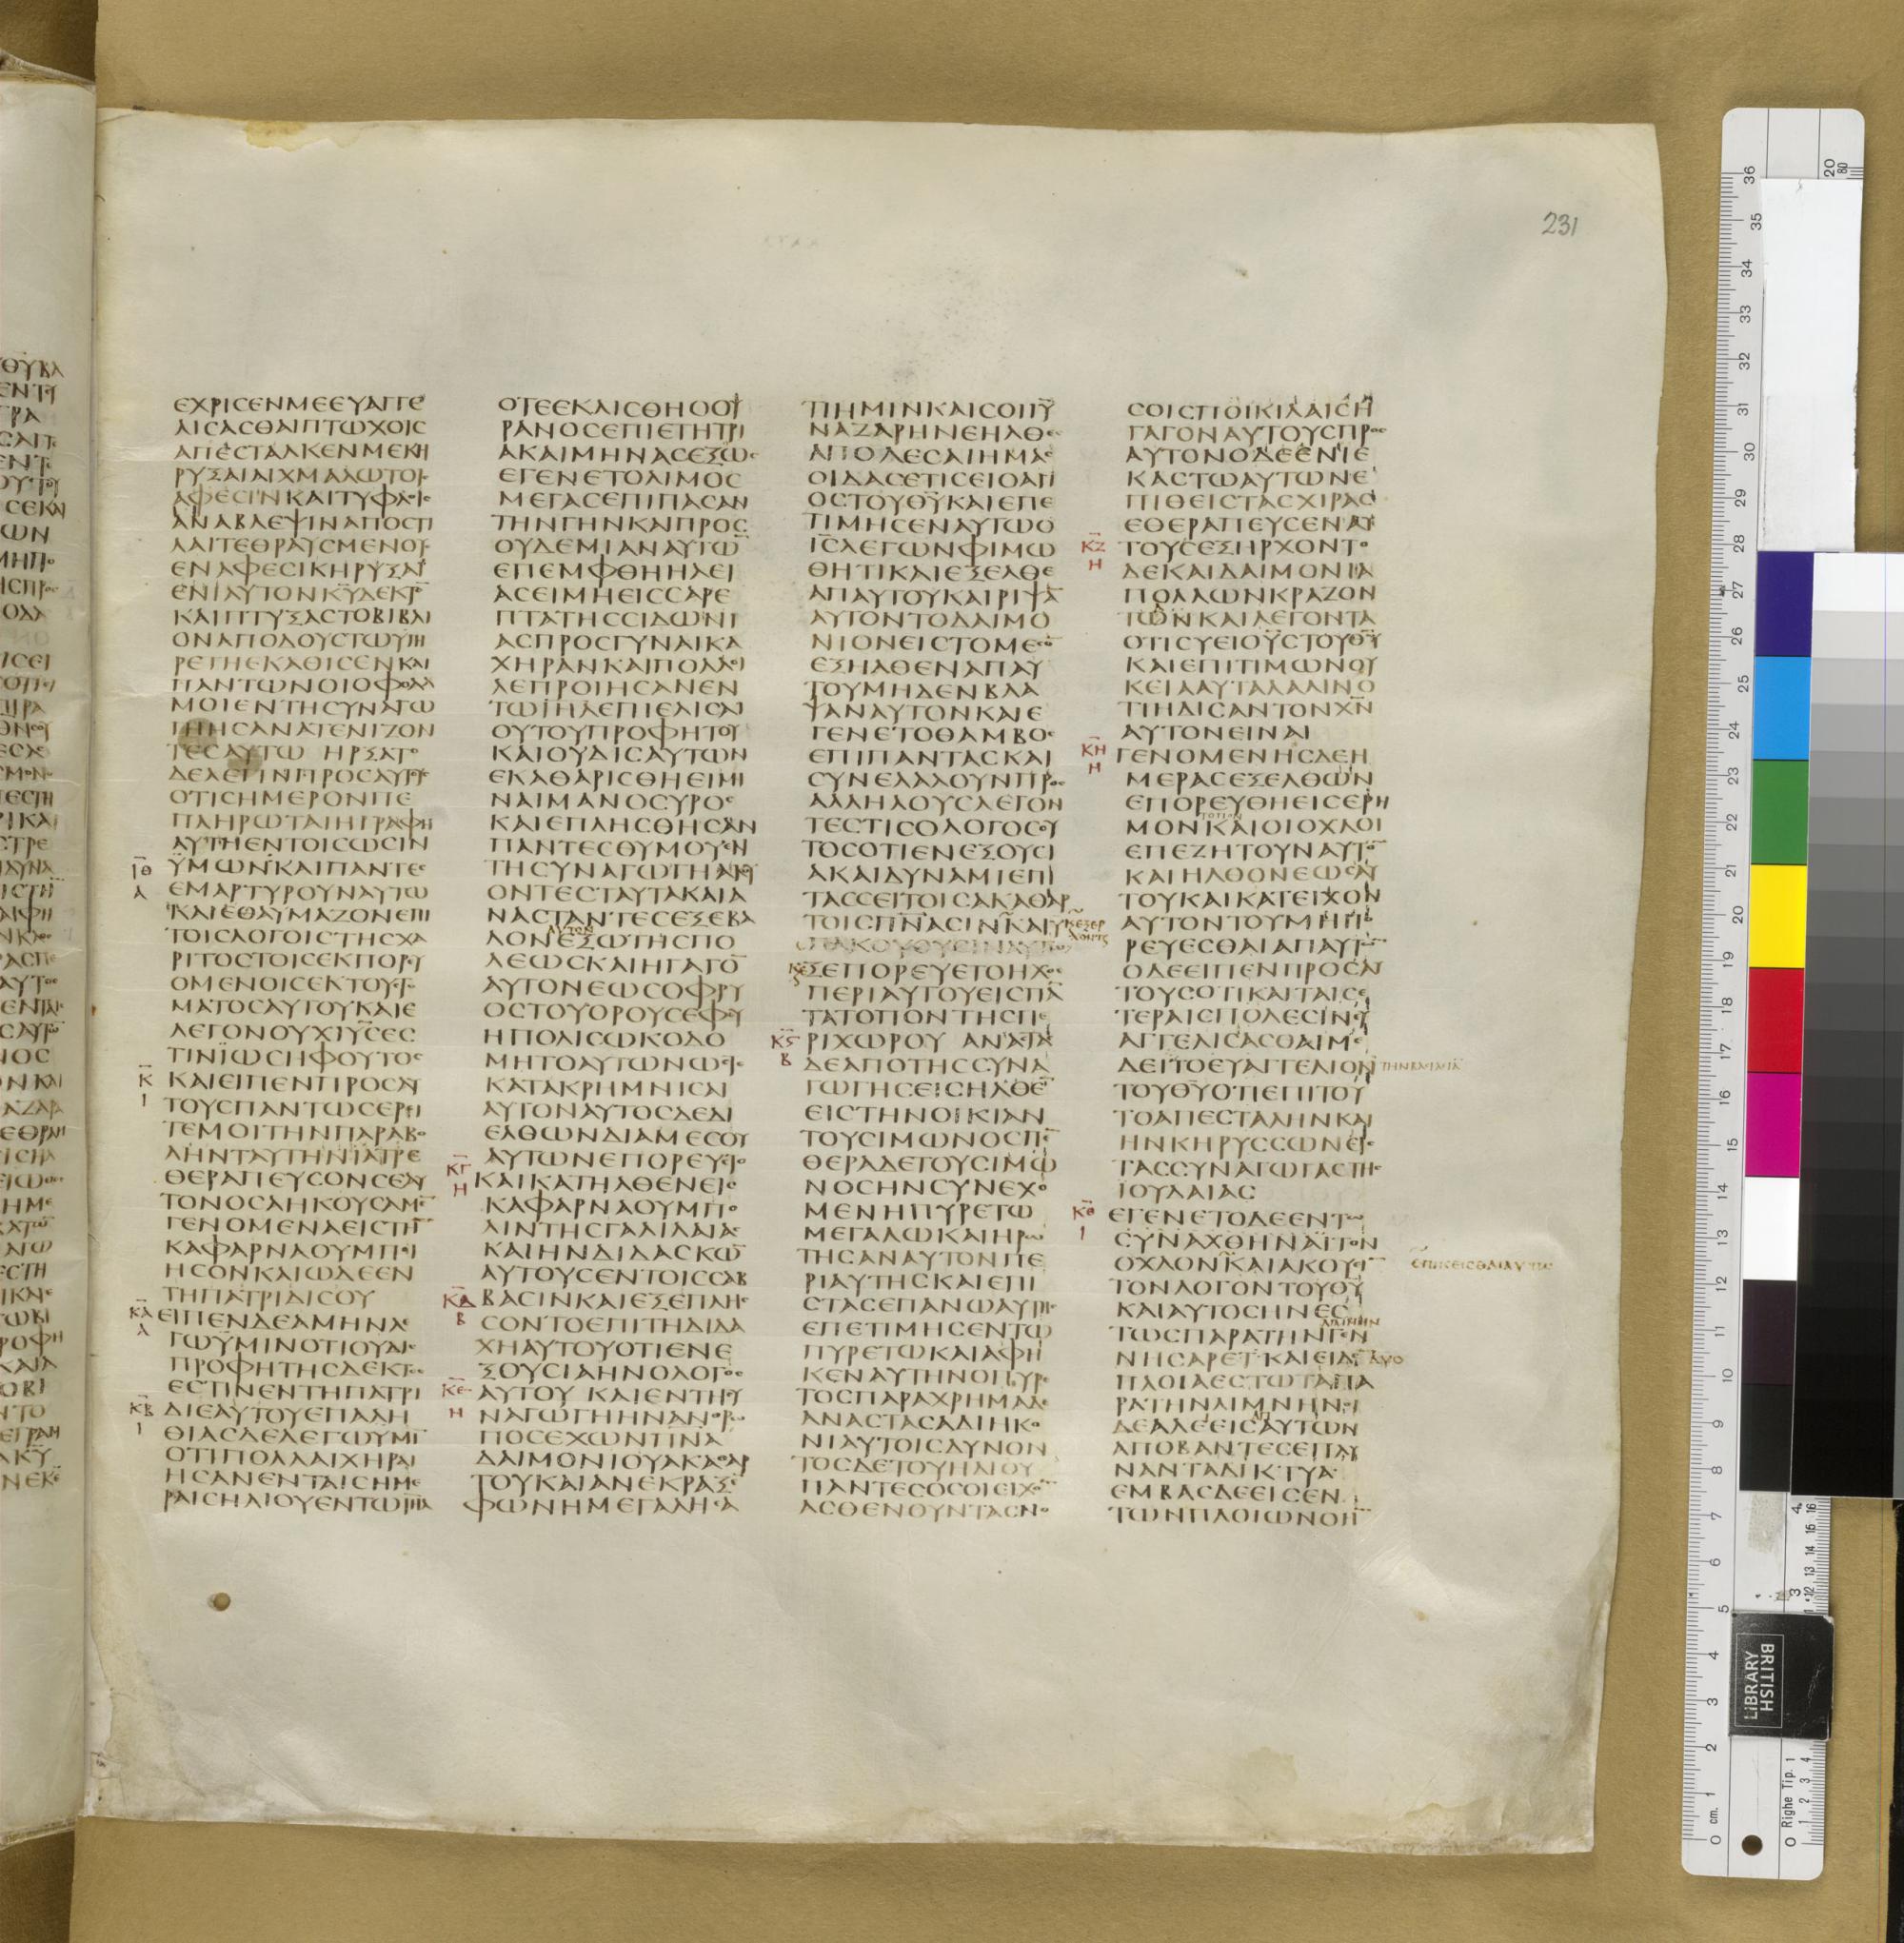 231
ΕΧΡΙCΕΝΜΕΕΥΑΓΓΕ
ΛΙCΑCΘΑΙΠΤΩΧΟΙC
ΑΠΕCΤΑΛΚΕΝΜΕΚΗ
ΡΥΞΑΙΑΙΧΜΑΛΩΤΟΙC
ΑΦΕCΙΝΚΑΙΤΥΦΛΟΙC
ΑΝΑΒΛΕΨΙΝΑΠΟCΤΙ
ΛΑΙΤΕΘΡΑΥCΜΕΝΟΥC
ΕΝΑΦΕCΙΚΗΡΥΞΑΙ
ΕΝΙΑΥΤΟΝΚΥΔΕΚΤΟ
ΚΑΙΠΤΥΞΑCΤΟΒΙΒΛΙ
ΟΝΑΠΟΔΟΥCΤΩΥΠΗ
ΡΕΤΗΕΚΑΘΙCΕΝΚΑΙ
ΠΑΝΤΩΝΟΙΟΦΘΑΛ
ΜΟΙΕΝΤΗCΥΝΑΓΩ
ΓΗΗCΑΝΑΤΕΝΙΖΟΝ
ΤΕCΑΥΤΩ ΗΡΞΑΤΟ
ΔΕΛΕΓΙΝΠΡΟCΑΥΤΟΥC
ΟΤΙCΗΜΕΡΟΝΠΕ
ΠΛΗΡΩΤΑΙΗΓΡΑΦΗ
ΑΥΤΗΕΝΤΟΙCΩCΙΝ
ΙΘ ΥΜΩΝΚΑΙΠΑΝΤΕC
Α ΕΜΑΡΤΥΡΟΥΝΑΥΤΩ
ΚΑΙΕΘΑΥΜΑΖΟΝΕΠΙ
ΤΟΙCΛΟΓΟΙCΤΗCΧΑ
ΡΙΤΟCΤΟΙCΕΚΠΟΡΕΥ
ΟΜΕΝΟΙCΕΚΤΟΥCΤΟ
ΜΑΤΟCΑΥΤΟΥΚΑΙΕ
ΛΕΓΟΝΟΥΧΙΥCΕC
ΤΙΝΙΩCΗΦΟΥΤΟC
Κ ΚΑΙΕΙΠΕΝΠΡΟCΑΥ
Ι ΤΟΥCΠΑΝΤΩCΕΡΕΙ
ΤΕΜΟΙΤΗΝΠΑΡΑΒΟ
ΛΗΝΤΑΥΤΗΝΙΑΤΡΕ
ΘΕΡΑΠΕΥCΟΝCΕΑΥ
ΤΟΝΟCΑΗΚΟΥCΑΜΕ
ΓΕΝΟΜΕΝΑΕΙCΤΗ
ΚΑΦΑΡΝΑΟΥΜΠΟΙ
ΗCΟΝΚΑΙΩΔΕΕΝ
ΤΗΠΑΤΡΙΔΙCΟΥ
ΚΑ ΕΙΠΕΝΔΕΑΜΗΝΛΕ
Α ΓΩΥΜΙΝΟΤΙΟΥΔΙC
ΠΡΟΦΗΤΗCΔΕΚΤΟC
ΕCΤΙΝΕΝΤΗΠΑΤΡΙ
ΚΒ ΔΙΕΑΥΤΟΥΕΠΑΛΗ
Ι ΘΙΑCΔΕΛΕΓΩΥΜΙ
ΟΤΙΠΟΛΛΑΙΧΗΡΑΙ
ΗCΑΝΕΝΤΑΙCΗΜΕ
ΡΑΙCΗΛΙΟΥΕΝΤΩΙΗΛ
ΟΤΕΕΚΛΙCΘΗΟΟΥ
ΡΑΝΟCΕΠΙΕΤΗΤΡΙ
ΑΚΑΙΜΗΝΑCΕΞΩC
ΕΓΕΝΕΤΟΛΙΜΟC
ΜΕΓΑCΕΠΙΠΑCΑΝ
ΤΗΝΓΗΝΚΑΙΠΡΟC
ΟΥΔΕΜΙΑΝΑΥΤΩ
ΕΠΕΜΦΘΗΗΛΕΙ
ΑCΕΙΜΗΕΙCCΑΡΕ
ΠΤΑΤΗCCΙΔΩΝΙ
ΑCΠΡΟCΓΥΝΑΙΚΑ
ΧΗΡΑΝΚΑΙΠΟΛΛΟΙ
ΛΕΠΡΟΙΗCΑΝΕΝ
ΤΩΙΗΛΕΠΙΕΛΙCΑΙ
ΟΥΤΟΥΠΡΟΦΗΤΟΥ
ΚΑΙΟΥΔΙCΑΥΤΩΝ
ΕΚΑΘΑΡΙCΘΗΕΙΜΗ
ΝΑΙΜΑΝΟCΥΡΟC
ΚΑΙΕΠΛΗCΘΗCΑΝ
ΠΑΝΤΕCΘΥΜΟΥΕΝ
ΤΗCΥΝΑΓΩΓΗΑΚΟΥ
ΟΝΤΕCΤΑΥΤΑΚΑΙΑ
ΝΑCΤΑΝΤΕCΕΞΕΒΑ
ΑΥΤΟΝ
ΛΟΝΕΞΩΤΗCΠΟ
ΛΕΩCΚΑΙΗΓΑΓΟ
ΑΥΤΟΝΕΩCΟΦΡΥ
ΟCΤΟΥΟΡΟΥCΕΦΟΥ
ΗΠΟΛΙCΩΚΟΔΟ
ΜΗΤΟΑΥΤΩΝΩCΤΕ
ΚΑΤΑΚΡΗΜΝΙCΑΙ
ΑΥΤΟΝΑΥΤΟCΔΕΔΙ
ΕΛΘΩΝΔΙΑΜΕCΟΥ
ΑΥΤΩΝΕΠΟΡΕΥΕΤΟ
ΚΓ ΚΑΙΚΑΤΗΛΘΕΝΕΙC
Η ΚΑΦΑΡΝΑΟΥΜΠΟ
ΛΙΝΤΗCΓΑΛΙΛΑΙΑC
ΚΑΙΗΝΔΙΔΑCΚΩ
ΑΥΤΟΥCΕΝΤΟΙCCΑΒ
ΚΔ ΒΑCΙΝΚΑΙΕΞΕΠΛΗC
Β CΟΝΤΟΕΠΙΤΗΔΙΔΑ
ΧΗΑΥΤΟΥΟΤΙΕΝΕ
ΞΟΥCΙΑΗΝΟΛΟΓΟC
ΚΕ ΑΥΤΟΥ ΚΑΙΕΝΤΗCΥ
Η ΝΑΓΩΓΗΗΝΑΝΘΡΩ
ΠΟCΕΧΩΝΤΙΝΑ
ΔΑΙΜΟΝΙΟΥΑΚΑΘΑΡ
ΤΟΥΚΑΙΑΝΕΚΡΑΞΕ
ΦΩΝΗΜΕΓΑΛΗΕΑ
ΤΙΗΜΙΝΚΑΙCΟΙΙΥ
ΝΑΖΑΡΗΝΕΗΛΘΕC
ΑΠΟΛΕCΑΙΗΜΑC
ΟΙΔΑCΕΤΙCΕΙΟΑΓΙ
ΟCΤΟΥΘΥΚΑΙΕΠΕ
ΤΙΜΗCΕΝΑΥΤΩΟ
ΙCΛΕΓΩΝΦΙΜΩ
ΘΗΤΙΚΑΙΕΞΕΛΘΕ
ΑΠΑΥΤΟΥΚΑΙΡΙΨΑ
ΑΥΤΟΝΤΟΔΑΙΜΟ
ΝΙΟΝΕΙCΤΟΜΕCΟ
ΕΞΗΛΘΕΝΑΠΑΥ
ΤΟΥΜΗΔΕΝΒΛΑ
ΨΑΝΑΥΤΟΝΚΑΙΕ
ΓΕΝΕΤΟΘΑΜΒΟC
ΕΠΙΠΑΝΤΑCΚΑΙ
CΥΝΕΛΑΛΟΥΝΠΡΟC
ΑΛΛΗΛΟΥCΛΕΓΟΝ
ΤΕCΤΙCΟΛΟΓΟCΟΥ
ΤΟCΟΤΙΕΝΕΞΟΥCΙ
ΑΚΑΙΔΥΝΑΜΙΕΠΙ
ΤΑCCΕΙΤΟΙCΑΚΑΘΑΡ
ΤΟΙCΠΝΑCΙΝΚΑΙΥ
ΠΑΚΟΥΟΥCΙΝΑΥΤΩ
ΕΞΕΠΟΡΕΥΕΤΟΗΧΟC
ΠΕΡΙΑΥΤΟΥΕΙCΠΑ
ΤΑΤΟΠΟΝΤΗCΠΕ
ΚϚ ΡΙΧΩΡΟΥ ΑΝΑCΤΑ
Β ΔΕΑΠΟΤΗCCΥΝΑ
ΓΩΓΗCΕΙCΗΛΘΕ
ΕΙCΤΗΝΟΙΚΙΑΝ
ΤΟΥCΙΜΩΝΟCΠΕ
ΘΕΡΑΔΕΤΟΥCΙΜΩ
ΝΟCΗΝCΥΝΕΧΟ
ΜΕΝΗΠΥΡΕΤΩ
ΜΕΓΑΛΩΚΑΙΗΡΩ
ΤΗCΑΝΑΥΤΟΝΠΕ
ΡΙΑΥΤΗCΚΑΙΕΠΙ
CΤΑCΕΠΑΝΩΑΥΤΗC
ΕΠΕΤΙΜΗCΕΝΤΩ
ΠΥΡΕΤΩΚΑΙΑΦΗ
ΚΕΝΑΥΤΗΝΟΠΥΡΕ
ΤΟCΠΑΡΑΧΡΗΜΑΔΕ
ΑΝΑCΤΑCΑΔΙΗΚΟ
ΝΙΑΥΤΟΙCΔΥΝΟΝ
ΤΟCΔΕΤΟΥΗΛΙΟΥ
ΠΑΝΤΕCΟCΟΙΕΙΧΟ
ΑCΘΕΝΟΥΝΤΑCΝΟ
CΟΙCΠΟΙΚΙΛΑΙCΗ
ΓΑΓΟΝΑΥΤΟΥCΠΡΟC
ΑΥΤΟΝΟΔΕΕΝΙΕ
ΚΑCΤΩΑΥΤΩΝΕ
ΠΙΘΕΙCΤΑCΧΙΡΑC
ΕΘΕΡΑΠΕΥCΕΝΑΥ
ΚΖ ΤΟΥCΕΞΗΡΧΟΝΤΟ
Η ΔΕΚΑΙΔΑΙΜΟΝΙΑ
ΠΟΛΛΩΝΚΡΑΖΟΝ
ΤΩΝΚΑΙΛΕΓΟΝΤΑ
ΟΤΙCΥΕΙΟΥCΤΟΥΘΥ
ΚΑΙΕΠΙΤΙΜΩΝΟΥ
ΚΕΙΑΑΥΤΑΛΑΛΙΝΟ
ΤΙΗΔΙCΑΝΤΟΝΧΝ
ΑΥΤΟΝΕΙΝΑΙ
ΚΗ ΓΕΝΟΜΕΝΗCΔΕΗ
Η ΜΕΡΑCΕΞΕΛΘΩΝ
ΕΠΟΡΕΥΘΗΕΙCΕΡΗ
ΤΟΠΟΝ
ΜΟΝΚΑΙΟΙΟΧΛΟΙ
ΕΠΕΖΗΤΟΥΝΑΥΤΟ
ΚΑΙΗΛΘΟΝΕΩCΑΥ
ΤΟΥΚΑΙΚΑΤΕΙΧΟΝ
ΑΥΤΟΝΤΟΥΜΗΠΟ
ΡΕΥΕCΘΑΙΑΠΑΥΤΩ
ΟΔΕΕΙΠΕΝΠΡΟCΑΥ
ΤΟΥCΟΤΙΚΑΙΤΑΙCΕ
ΤΕΡΑΙCΠΟΛΕCΙΝΕΥ
ΑΓΓΕΛΙCΑCΘΑΙΜΕ
ΔΕΙΤΟΕΥΑΓΓΕΛΙΟΝ
ΤΟΥΘΥΟΤΙΕΠΙΤΟΥ
ΤΟΑΠΕCΤΑΛΗΝΚΑΙ
ΗΝΚΗΡΥCCΩΝΕΙC
ΤΑCCΥΝΑΓΩΓΑCΤΗC
ΙΟΥΔΑΙΑC
ΚΘ ΕΓΕΝΕΤΟΔΕΕΝΤΩ
Ι CΥΝΑΧΘΗΝΑΙΤΟΝ
ΟΧΛΟΝΚΑΙΑΚΟΥΕΙ
ΤΟΝΛΟΓΟΝΤΟΥΘΥ
ΚΑΙΑΥΤΟCΗΝΕC
ΤΩCΠΑΡΑΤΗΝΓΕΝ
ΝΗCΑΡΕΤΚΑΙΕΙΔΕ ΔΥΟ
ΠΛΟΙΑΕCΤΩΤΑΠΑ
ΡΑΤΗΝΛΙΜΝΗΝΟΙ
ΔΕΑΛΕΕΙCΑΥΤΩΝ
ΑΠΟΒΑΝΤΕCΕΠΛΥ
ΝΑΝΤΑΔΙΚΤΥΑ
ΕΜΒΑCΔΕΕΙCΕΝ
ΤΩΝΠΛΟΙΩΝΟΗ
BRITISH
LIBRARY